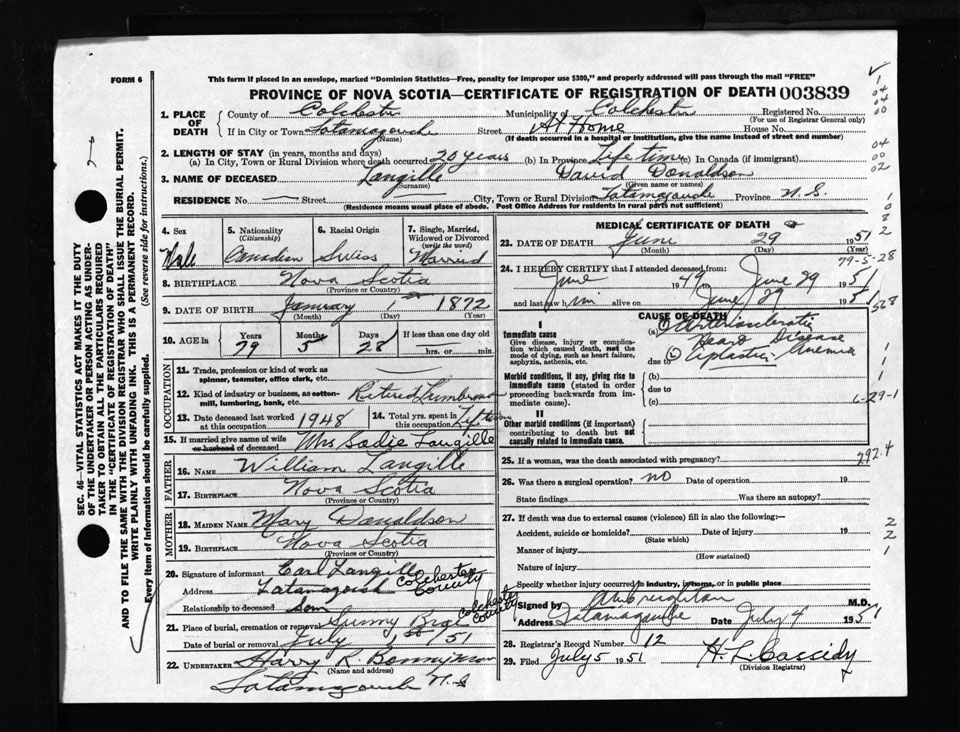 This form if placed in an envelope, marked "Dominion Statistics—Free, penalty for improper use $300," and properly addressed will pass through the mail "FREE"
FORM 6
PROVINCE OF NOVA SCOTIA—CERTIFICATE OF REGISTRATION OF DEATH 003839
1. PLACE OF DEATH County of Colchester Municipality of Colchester Registered No.
(For use of Registrar General only)
If in City or Town Tatamagouche Street At Home House No.
(Name) (If death occurred in a hospital or institution, give the name instead of street and number)
2. LENGTH OF STAY (in years, months and days)
(a) In City, Town or Rural Division where death occurred 20 years (b) In Province Life time (c) In Canada (if immigrant)
3. NAME OF DECEASED Langille David Donaldson
(Surname) (Given name or names)
RESIDENCE No. — Street City, Town or Rural Division Tatamagouche Province N.S.
(Residence means usual place of abode. Post Office Address for residents in rural parts not sufficient)
4. Sex 5. Nationality (Citizenship) 6. Racial Origin 7. Single, Married, Widowed or Divorced (write the word)
Male Canadian Swiss Married
8. BIRTHPLACE Nova Scotia
(Province or Country)
9. DATE OF BIRTH January 1 1872
(Month) (Day) (Year)
10. AGE in Years Months Days If less than one day old
79 5 28 hrs. or min.
OCCUPATION
11. Trade, profession or kind of work as spinner, teamster, office clerk, etc.
12. Kind of industry or business, as cotton-mill, lumbering, bank, etc. Retired Lumberman
13. Date deceased last worked at this occupation 1948 14. Total yrs. spent in this occupation Life time
15. If married give name of wife or husband of deceased Mrs Sadie Langille
FATHER
16. NAME William Langille
17. BIRTHPLACE Nova Scotia
(Province or Country)
MOTHER
18. MAIDEN NAME Mary Donaldson
19. BIRTHPLACE Nova Scotia
(Province or Country)
20. Signature of informant Carl Langille
Address Tatamagouche Colchester County
Relationship to deceased Son
21. Place of burial, cremation or removal Sunny Brae Colchester County
Date of burial or removal July 1st/51
22. UNDERTAKER Harry K. Bonnyman
(Name and address)
Tatamagouche N.S
MEDICAL CERTIFICATE OF DEATH
23. DATE OF DEATH June 29 1951
(Month) (Day) (Year)
79-5-28
24. I HEREBY CERTIFY that I attended deceased from:
June 1949 to June 29 1951
and last saw him alive on June 29 1951
CAUSE OF DEATH
I
Immediate cause (a) (1) Arteriosclerotic
Give disease, injury or complication which caused death, not the mode of dying, such as heart failure, asphyxia, asthenia, etc. Heart Disease
due to (2) Aplastic Anemia
Morbid conditions, if any, giving rise to immediate cause (stated in order proceeding backwards from immediate cause). (b)
due to
(c)
6-29-1
II
Other morbid conditions (if important) contributing to death but not causally related to immediate cause.
25. If a woman, was the death associated with pregnancy?
292.4
26. Was there a surgical operation? no Date of operation 19
State findings Was there an autopsy?
27. If death was due to external causes (violence) fill in also the following:—
Accident, suicide or homicide? Date of injury 19
(State which)
Manner of injury
(How sustained)
Nature of injury
Specify whether injury occurred in industry, in home, or in public place
Signed by M.D.
Address Tatamagouche Date July 4 1951
28. Registrar's Record Number 12
29. Filed July 5 1951 H. L. Cassidy
(Division Registrar)
SEC. 46—VITAL STATISTICS ACT MAKES IT THE DUTY OF THE UNDERTAKER OR PERSON ACTING AS UNDERTAKER TO OBTAIN ALL THE PARTICULARS REQUIRED IN THE "CERTIFICATE OF REGISTRATION OF DEATH" AND TO FILE THE SAME WITH THE DIVISION REGISTRAR WHO SHALL ISSUE THE BURIAL PERMIT.
WRITE PLAINLY WITH UNFADING INK. THIS IS A PERMANENT RECORD.
Every item of Information should be carefully supplied. (See reverse side for instructions.)